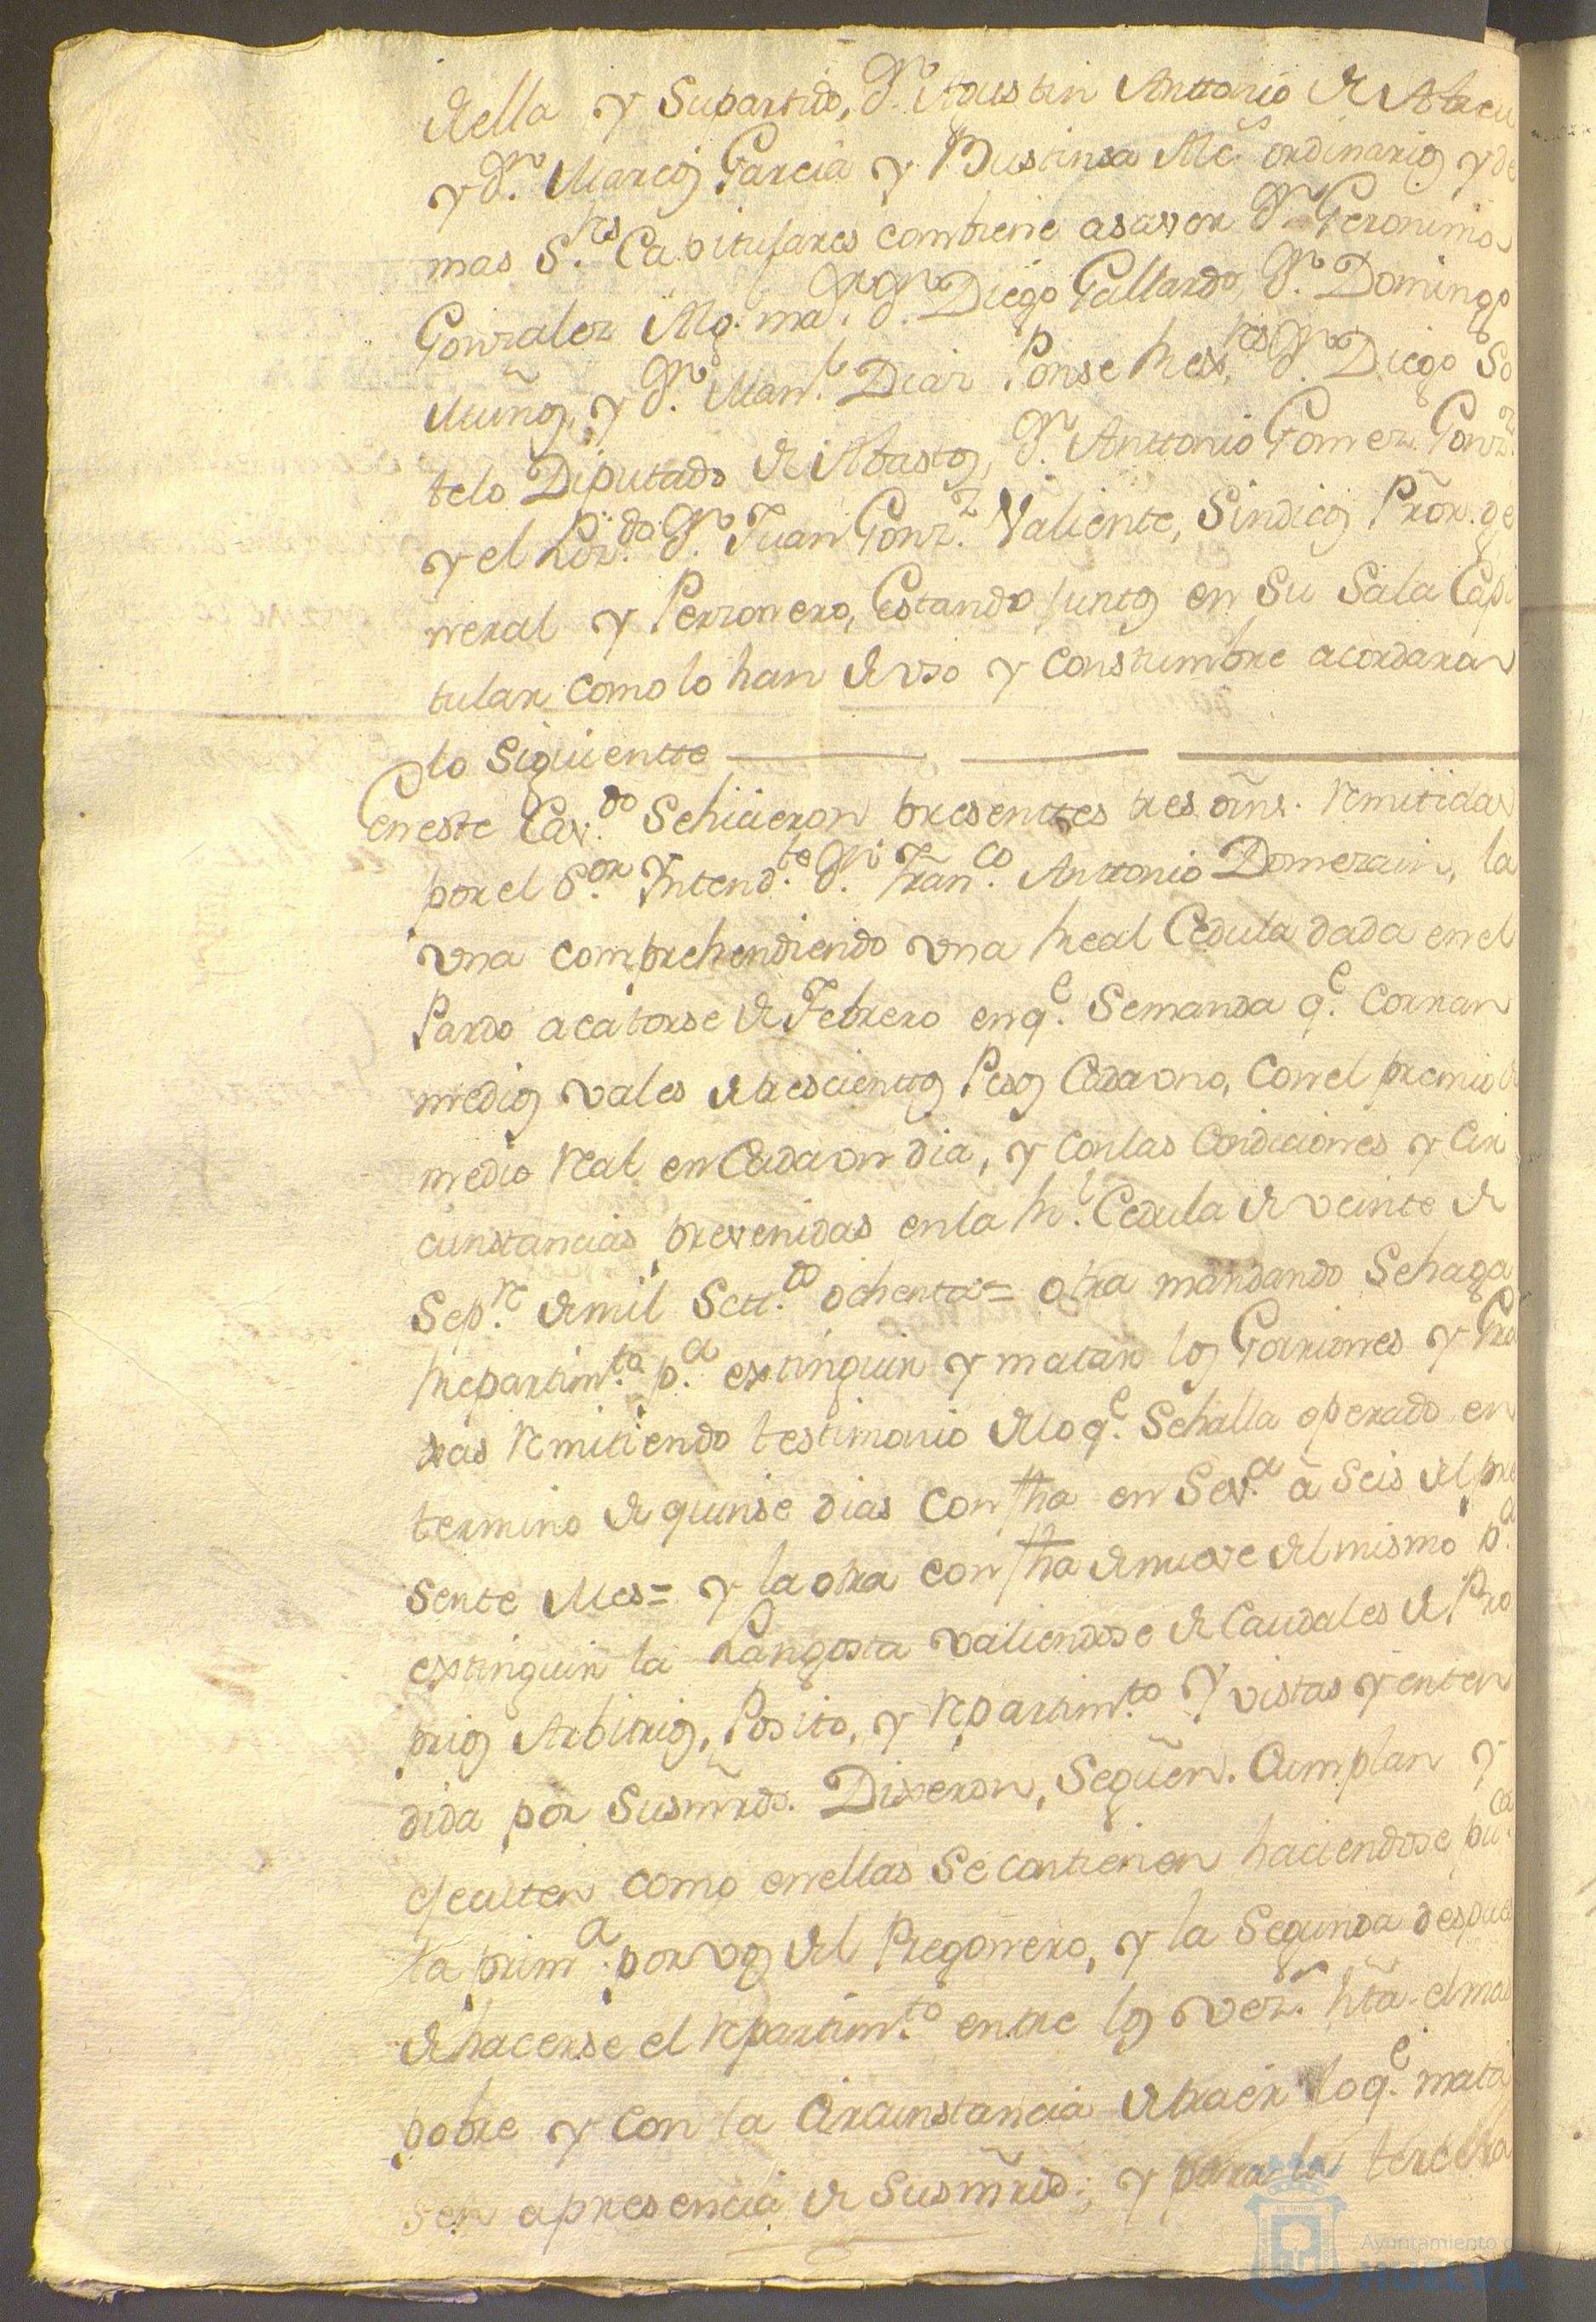 della y Supartido, Dn. Agustin Anttonio de Abreu
y Dn. Marcos Garcia y Bustinsa Alcs. ordinarios y de
mas S.res Capitulares combiene asaver Dn. Geronimo
Gonzalez Alg. mar. Dn. Diego Gallardo, Dn. Domingo
Muños, y Dn. Manl. Diaz Ponse Rexres Dn. Diego So
telo Diputado de Abastos, Dn. Anttonio Gomez Gonz.z
y el Liz.do Dn. Juan Gonz.z Valiente, Sindicos Prõr. ge
neral y Perzonero, Estando juntos en Su Sala Capi
tular como lo han de vso y Constumbre acordaron
lo Siguientte
En este Cav.do Sehicieron presenttes tres orñs. remitidas
por el S.or Yntend.te Dn. Fran.co Anttonio Domezain, la
vna comprehendiendo vna Real Cedula dada en el
Pardo a catorse de Febrero en q.e Semanda q.e Corran
medios vales de trescienttos Pesos Cada vno, Con el premio de
medio real en Cada vn dia, y Con las Condiciones y Cir
cunstancias prevenidas en la R.l Cedula de veinte de
Sep.re de mil Sett.to ochenta= otra mandando Sehaga
Repartim.to p.a extinguir y matar los Gorriones y Gra
xas remitiendo testimonio de lo q.e Sehalla operado en
termino de quinse dias con fha en Sev.a à Seis del pre
sente Mes= y la otra con fha de nueve del mismo p.a
extinguir la Langosta valiendose de Caudales de Pro
prios Arbitrios, Posito, y repartim.to Y vistas y enten
dida por Susmrds. Dixeron, Seguen. Cumplan y
executen como en ellas Se contienen haciendose pu.ca
la prim.a por vos del Pregonero, y la Segunda despues
de hacerse el repartim.to entre los vez.s hta. el mas
pobre y con la Circunstancia de traer lo q.e matá
sen a presencia de Susmrds.; y para la tercera
Ayuntamiento de
HUELVA